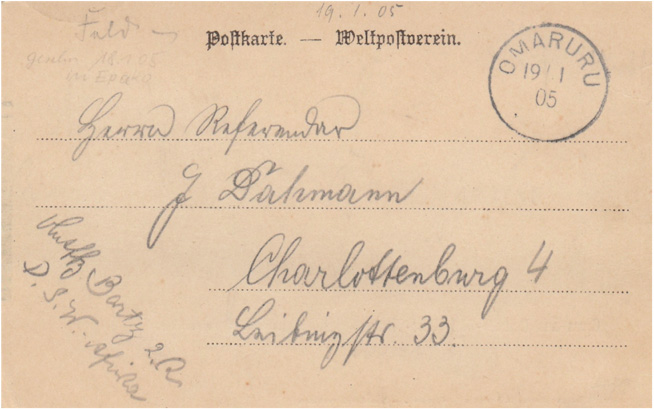 19.1.05
Feld-
Postkarte. — Weltpostverein.
OMARURU
19/1
05
geschr. 18.1.05
in Epako
Herrn Referendar
J Dähmann
Charlottenburg 4
Leibnizstr. 33.
Bartz
D. S. W. Afrika